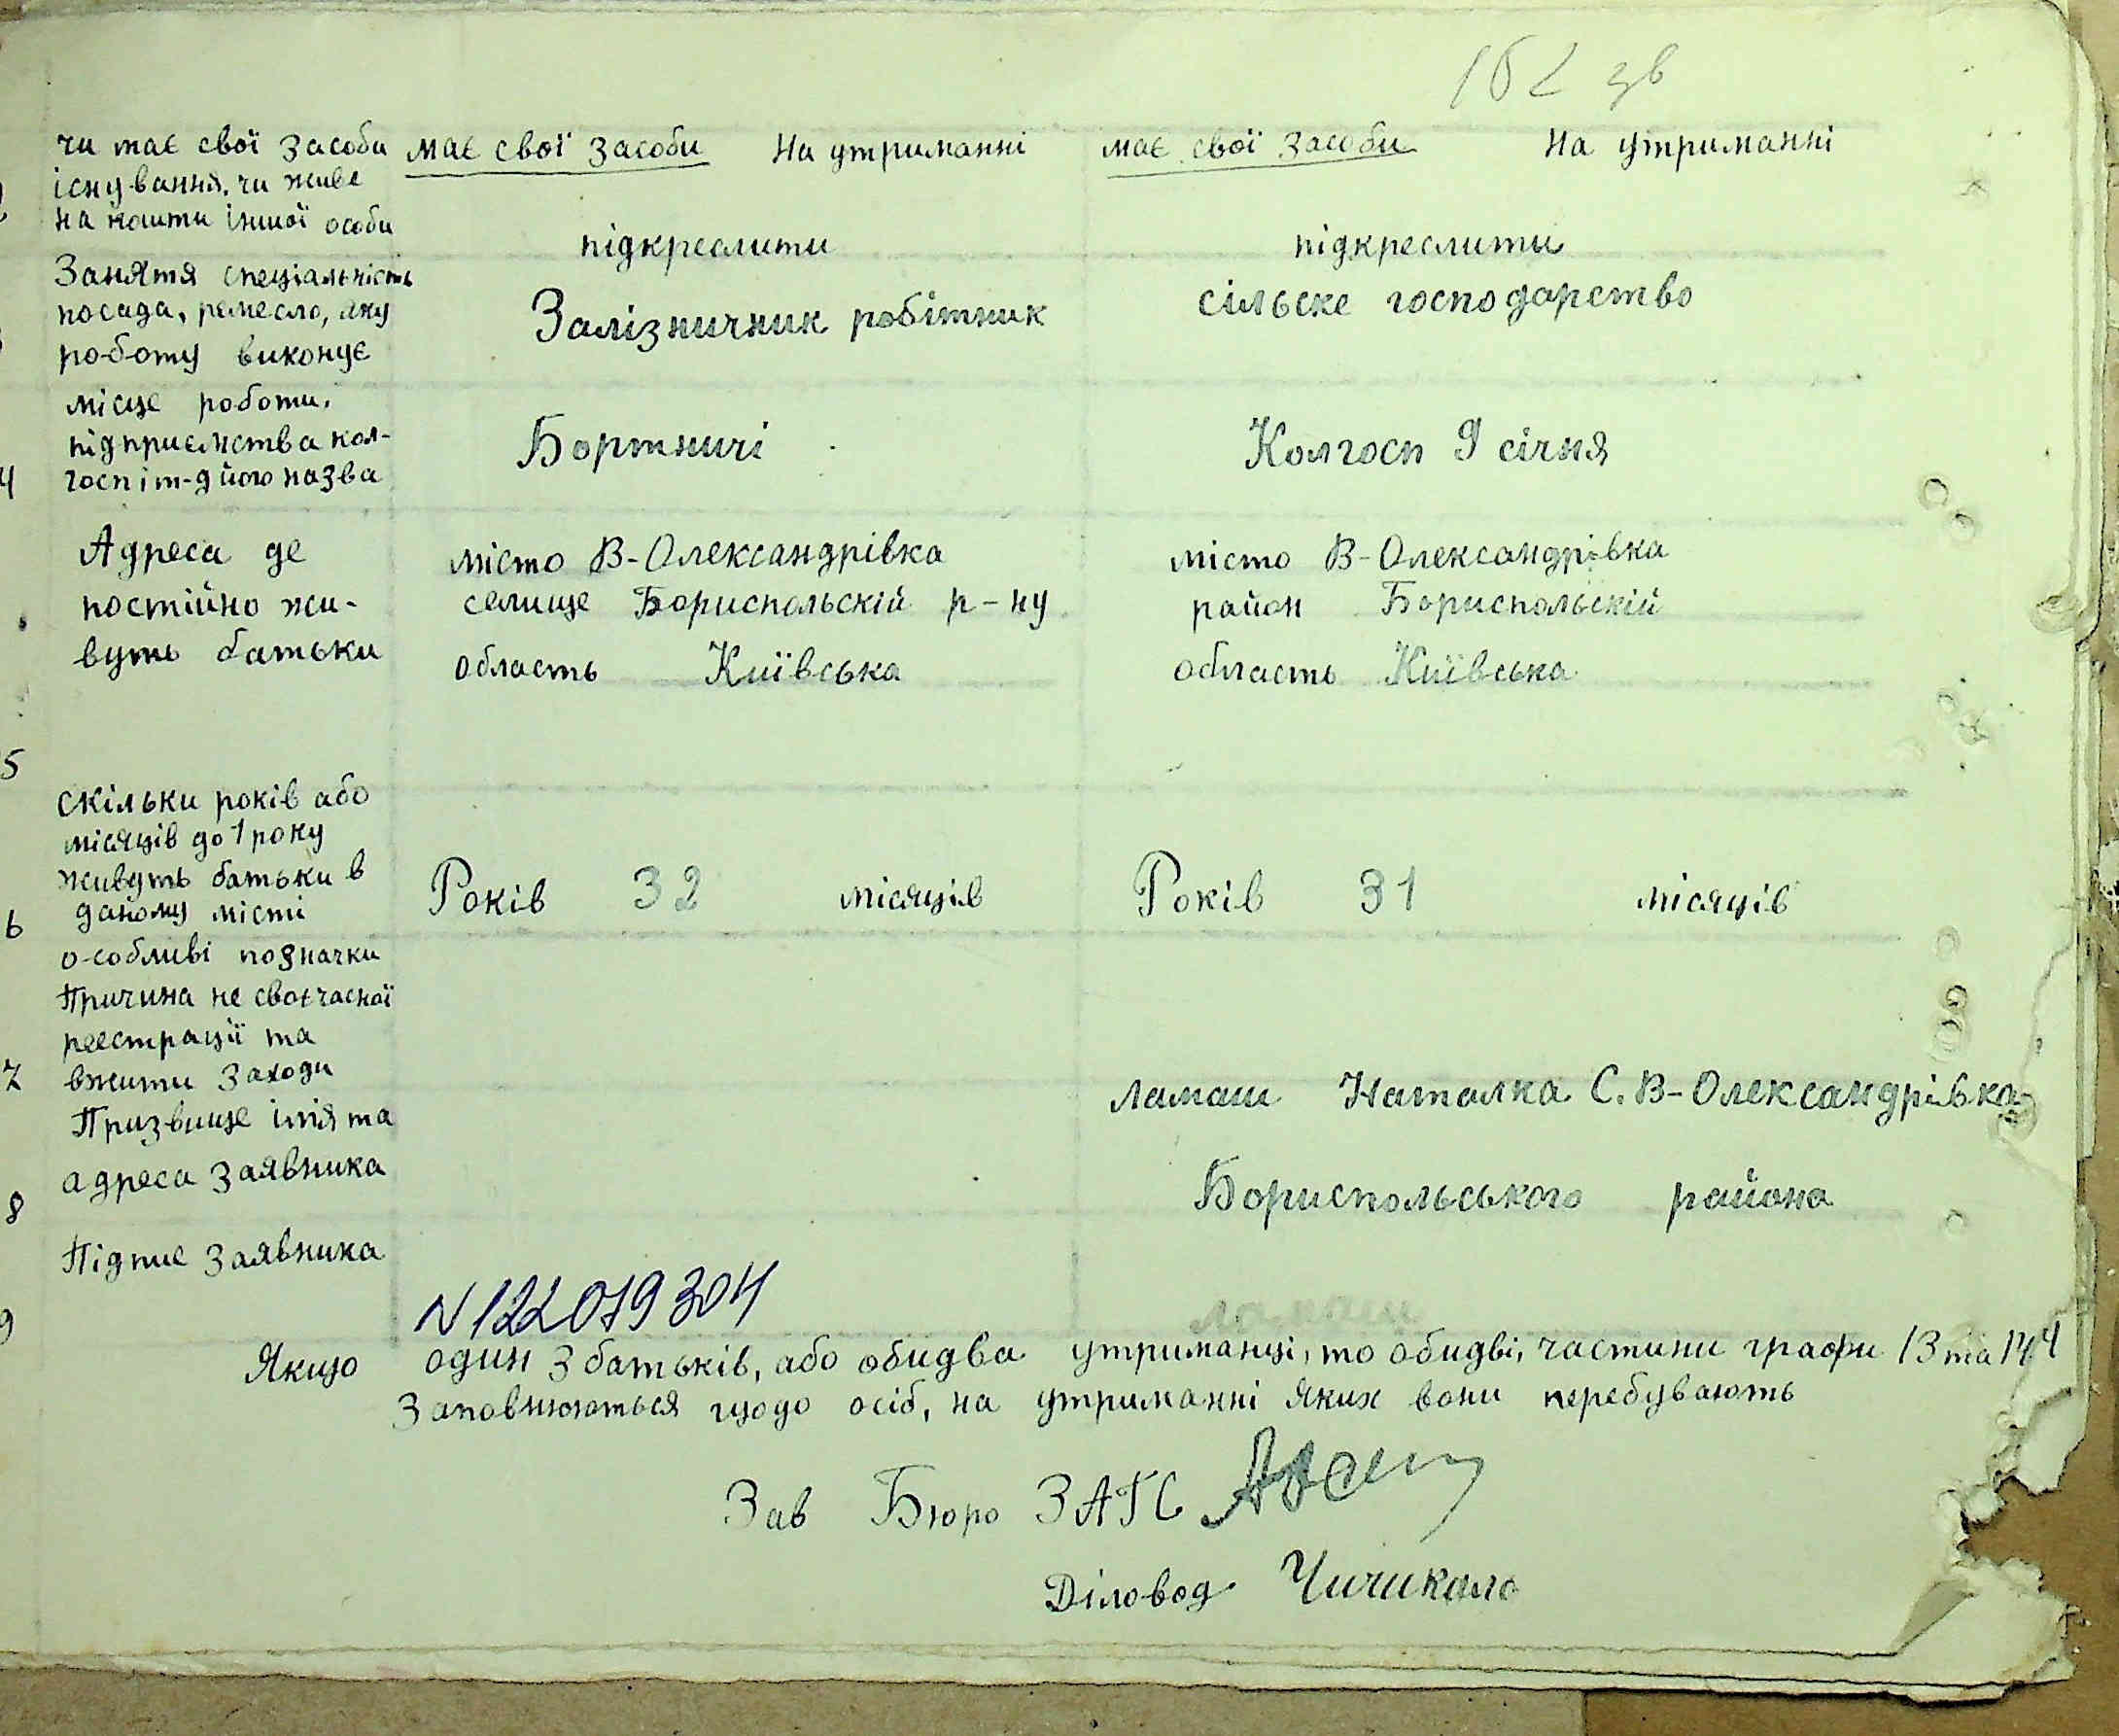 162 зв
чи має свої засоби має свої засоби На утриманні має свої засоби На утриманні
існування, чи живе
на кошти іншої особи
підкреслити підкреслити
Заняття спеціальність
посада, ремесло, яку Залізничник робітник сільске господарство
роботу виконує
місце роботи,
підприємства кол- Бортничі Колгосп 9 січня
4 госп і т-д його назва
Адреса де місто В-Олександрівка місто В-Олександрівка
постійно жи- селище Бориспольскій р-ну район Бориспольскій
вуть батьки область Київська область Київська
5
скільки років або
місяців до 1 року
живуть батьки в Років 32 місяців Років 31 місяців
6 даному місті
особливі позначки
Причина не своєчасної
реєстрації та
7 вжити заходи Ламаш Наталка С. В-Олександрівка
Призвище імя та
адреса заявника Бориспольського района
8
Підпис заявника
N122019304
9 ламаш
Якщо один з батьків, або обидва утриманці, то обидві, частини графи 13 та 14
Заповнюються щодо осіб, на утриманні яких вони перебувають
Зав Бюро ЗАГС
Діловод Чичикало